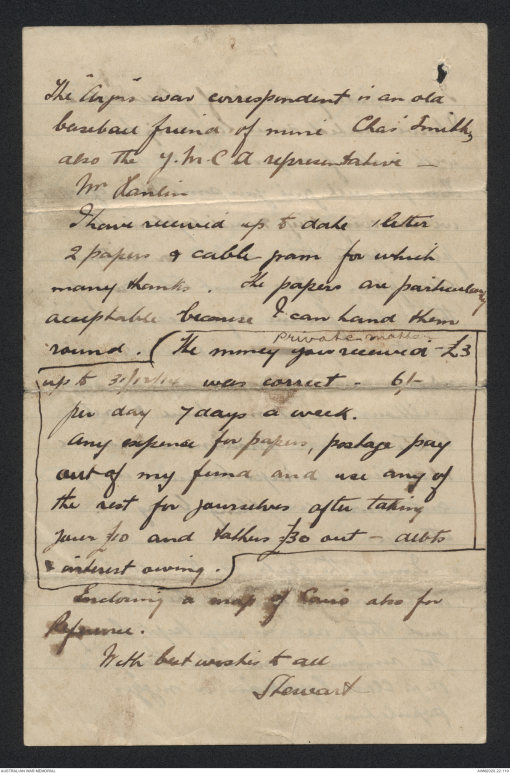 The "Argus" war correspondent is an old
baseball friend of mine Chas Smith,
also the Y.M.C.A representative –
Mr Hanlin
I have received up to date 1 letter
2 papers & cable gram for which
many thanks. The papers are particularly
acceptable because I can hand them
Private matter.
round. (The money you received – £3
up to 31/12/14 was correct – 6/-
per day 7 days a week.
Any expense for papers, postage pay
out of my fund and use any of
the rest for yourselves after taking
your £10 and fathers £30 out – debts
& interest owing.
Enclosing a map of Cairo also for
Reference.
With best wishes to all
Stewart
AUSTRALIAN WAR MEMORIAL